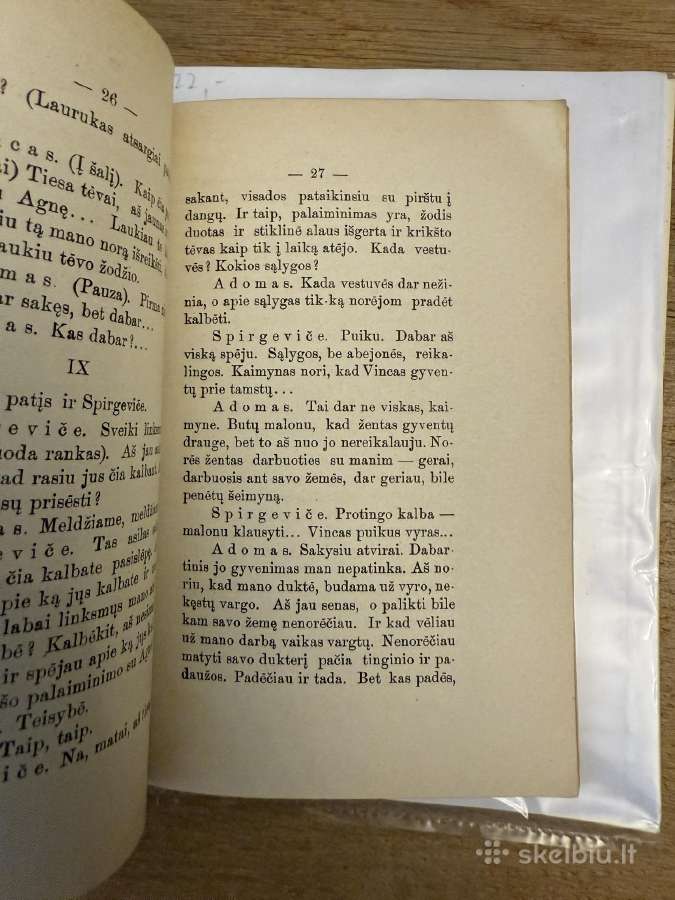 — 26 —
? (Laurukas atsargiai
c a s. (Į šalį). Kaip čia
ai) Tiesa tėvai, aš
Agnę... Laukiau
tą mano norą išreikšti,
laukiu tėvo žodžio.
m a s. (Pauza).
ar sakęs, bet dabar...
a s. Kas dabar?...
IX
patįs ir Spirgevičе.
e v i č e. Sveiki
uoda rankas). Aš
ad rasiu jus čia kalbant.
sų prisėsti?
a s. Meldžiame,
e v i č e. Tas asilas
čia kalbate pasislėpę.
apie ką jųs kalbate ir
labai linksmųs mano
bė? Kalbėkit, aš
ir spėjau apie ką jųs
šo palaiminimo su
Teisybė.
Taip, taip.
i č e. Na, matai, aš
22,-
— 27 —
sakant, visados pataikinsiu su pirštu į
dangų. Ir taip, palaiminimas yra, žodis
duotas ir stiklinė alaus išgerta ir krikšto
tėvas kaip tik į laiką atėjo. Kada vestu-
vės? Kokios sąlygos?
A d o m a s. Kada vestuvės dar neži-
nia, o apie sąlygas tik-ką norėjom pradėt
kalbėti.
S p i r g e v i č e. Puiku. Dabar aš
viską spėju. Sąlygos, be abejonės, reika-
lingos. Kaimynas nori, kad Vincas gyven-
tų prie tamstų...
A d o m a s. Tai dar ne viskas, kai-
myne. Butų malonu, kad žentas gyventų
drauge, bet to aš nuo jo nereikalauju. No-
rės žentas darbuoties su manim — gerai,
darbuosis ant savo žemės, dar geriau, bile
penėtų šeimyną.
S p i r g e v i č e. Protingo kalba —
malonu klausyti... Vincas puikus vyras...
A d o m a s. Sakysiu atvirai. Dabar-
tinis jo gyvenimas man nepatinka. Aš no-
riu, kad mano duktė, budama už vyro, ne-
kęstų vargo. Aš jau senas, o palikti bile
kam savo žemę nenorėčiau. Ir kad vėliau
už mano darbą vaikas vargtų. Nenorėčiau
matyti savo dukterį pačia tinginio ir pa-
daužos. Padėčiau ir tada. Bet kas padės,
skelbiu.lt